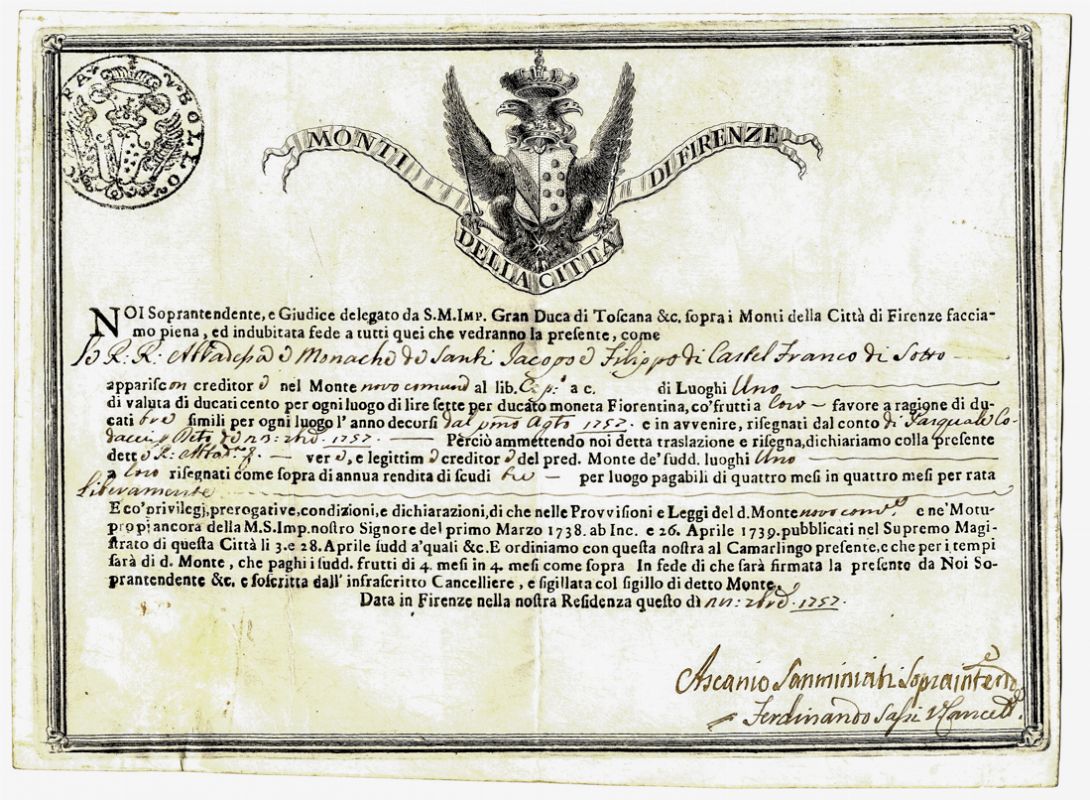 BOLLO
MONTI
DELLA CITTA
DI FIRENZE
NOI Soprantendente, e Giudice delegato da S.M.IMP. Gran Duca di Toscana &c. sopra i Monti della Città di Firenze faccia-
mo piena, ed indubitata fede a tutti quei che vedranno la presente, come
le R: R: Abbadessa e Monache de Santi Jacopo e Filippo di Castel Franco di Sotto
appariscon creditore nel Monte novo comune al lib. a c. di Luoghi Uno
di valuta di ducati cento per ogni luogo di lire sette per ducato moneta Fiorentina, co'frutti a loro favore a ragione di du-
cati tre simili per ogni luogo l'anno decorsi dal pmo Agto 1757. e in avvenire, risegnati dal conto di Pasquale Co-
dacci 1757. Perciò ammettendo noi detta traslazione e risegna, dichiariamo colla presente
dette R: vere, e legittime creditore del pred. Monte de' sudd. luoghi Uno
a loro risegnati come sopra di annua rendita di scudi tre per luogo pagabili di quattro mesi in quattro mesi per rata
liberamente
E co'privilegj, prerogative, condizioni, e dichiarazioni, di che nelle Provvisioni e Leggi del d. Monte novo e ne'Motu-
propj ancora della M.S.Imp. nostro Signore del primo Marzo 1738. ab Inc. e 26. Aprile 1739. pubblicati nel Supremo Magi-
strato di questa Città li 3. e 28. Aprile sudd a'quali &c. E ordiniamo con questa nostra al Camarlingo presente, e che per i tempi
sarà di d. Monte, che paghi i sudd. frutti di 4. mesi in 4. mesi come sopra In fede di che sarà firmata la presente da Noi So-
prantendente &c. e soscritta dall' infrascritto Cancelliere, e sigillata col sigillo di detto Monte.
Data in Firenze nella nostra Residenza questo dì 1757.
Ascanio Sanminiati Sopraintende
Ferdinando Sassi V Cancell